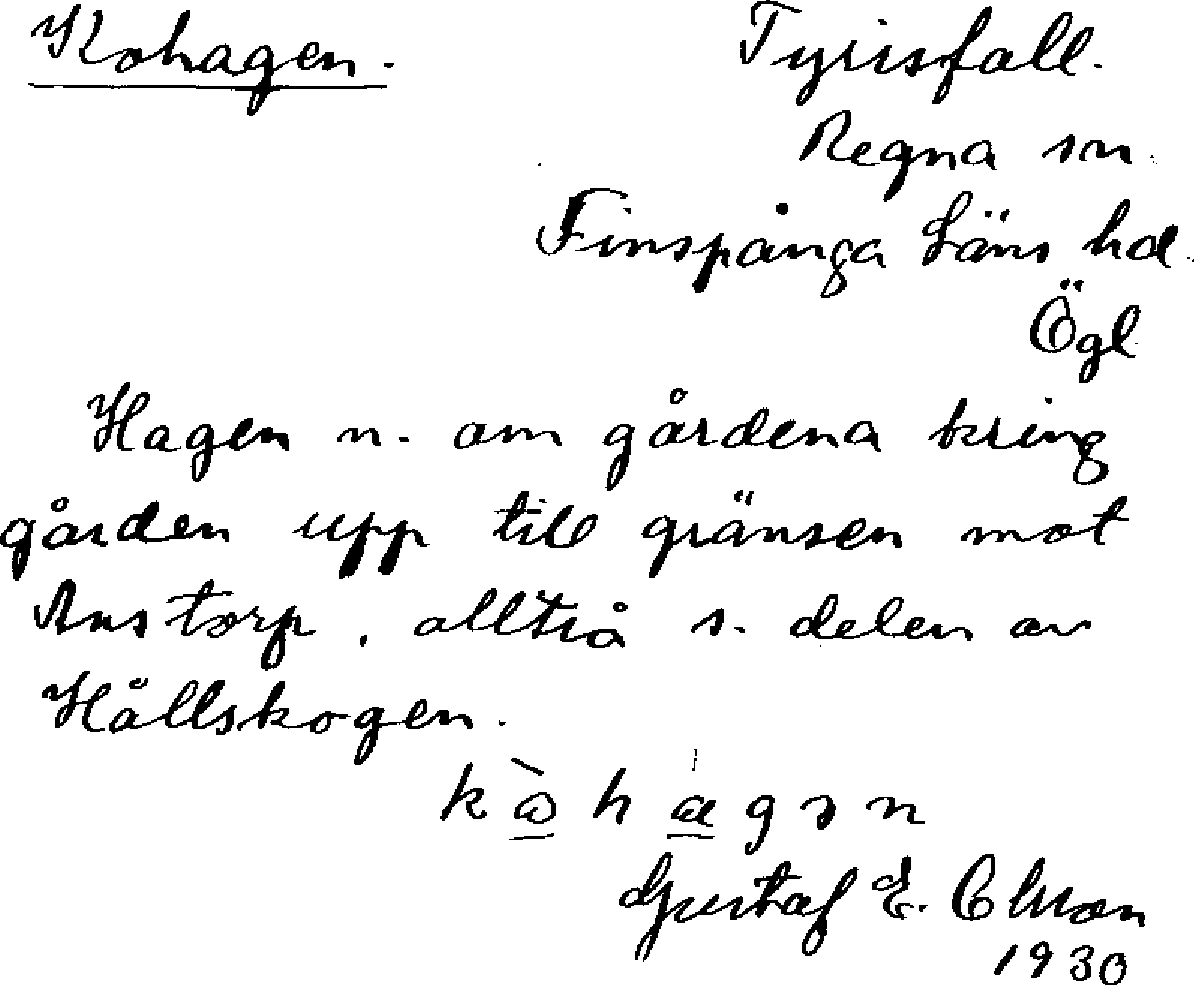 Kohagen. Tyrisfall.
Regna sn.
Finspånga Läns hd.
Ögl
Hagen n. om gårdena kring
gården upp till gränsen mot
Anstorp, alltså s. delen av
Hållskogen.
Gustaf E. Olsson
1930